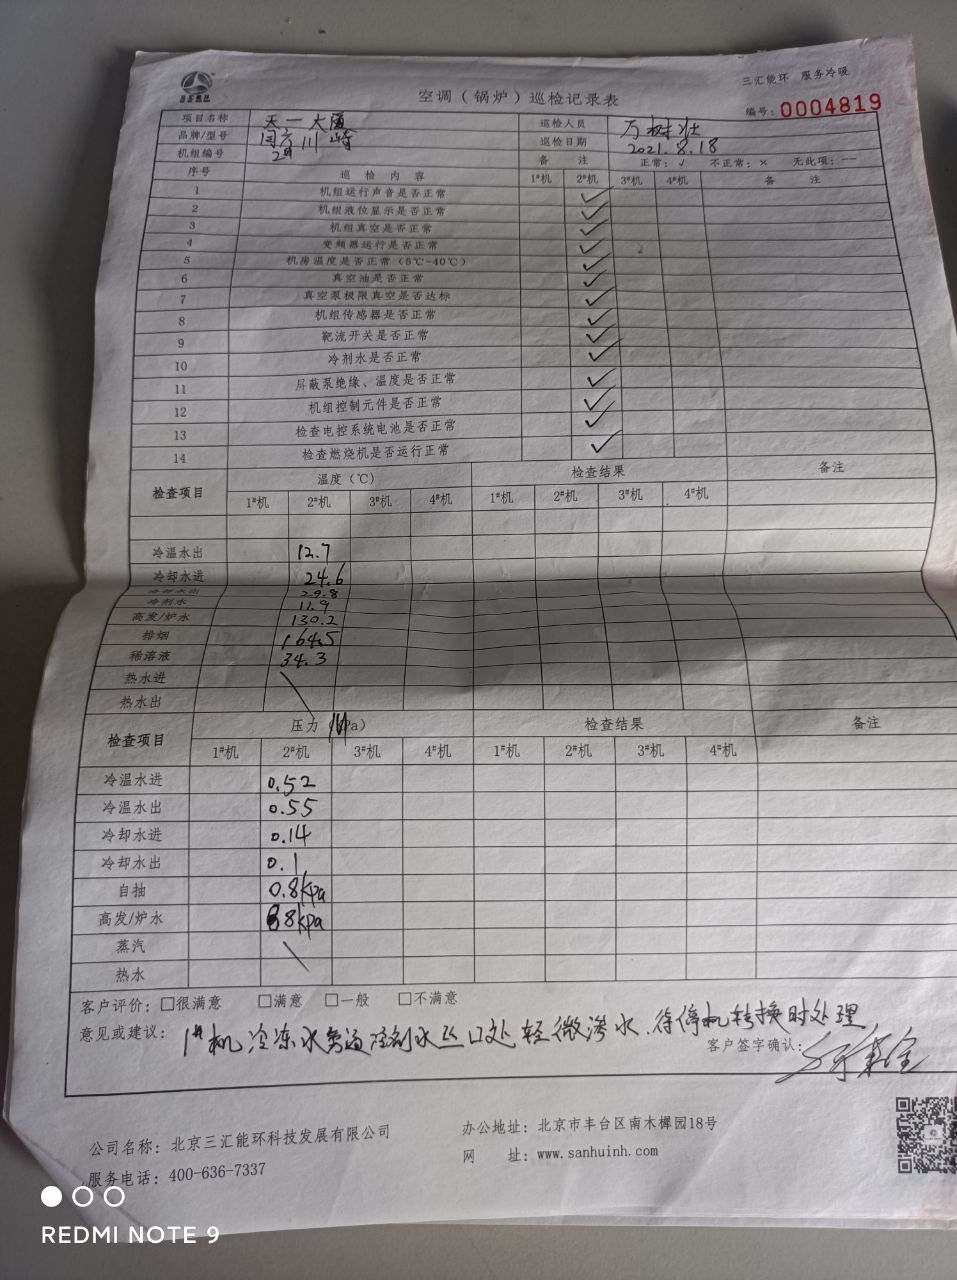 三汇能环 服务冷暖
空调（锅炉）巡检记录表
编号：0004819
项目名称 天一大厦 巡检人员 万树壮
品牌/型号 川崎 巡检日期 2021.8.18
机组编号 2# 备注 正常：√ 不正常：× 无此项：—
序号 巡检内容 1#机 2#机 3#机 4#机 备注
1 机组运行声音是否正常 ✓
2 机组液位显示是否正常 ✓
3 机组真空是否正常 ✓
4 变频器运行是否正常 ✓
5 机房温度是否正常（5℃-40℃） ✓
6 真空油是否正常 ✓
7 真空泵极限真空是否达标 ✓
8 机组传感器是否正常 ✓
9 靶流开关是否正常 ✓
10 冷剂水是否正常 ✓
11 屏蔽泵绝缘、温度是否正常 ✓
12 机组控制元件是否正常 ✓
13 检查电控系统电池是否正常 ✓
14 检查燃烧机是否运行正常 ✓
检查项目 温度（℃） 检查结果 备注
1#机 2#机 3#机 4#机 1#机 2#机 3#机 4#机
冷温水出 12.7
冷却水进 24.6
冷却水出 29.8
冷剂水 11.9
高发/炉水 130.2
排烟 164.5
稀溶液 34.3
热水进 \
热水出
检查项目 压力（MPa） 检查结果 备注
1#机 2#机 3#机 4#机 1#机 2#机 3#机 4#机
冷温水进 0.52
冷温水出 0.55
冷却水进 0.14
冷却水出 0.1
自抽 0.8kpa
高发/炉水 88kpa
蒸汽 \
热水
客户评价：□很满意 □满意 □一般 □不满意
意见或建议：1#机冷冻水 口处轻微渗水，待停机转换时处理
客户签字确认：
公司名称：北京三汇能环科技发展有限公司 办公地址：北京市丰台区南木樨园18号
服务电话：400-636-7337 网 址：www.sanhuinh.com
REDMI NOTE 9